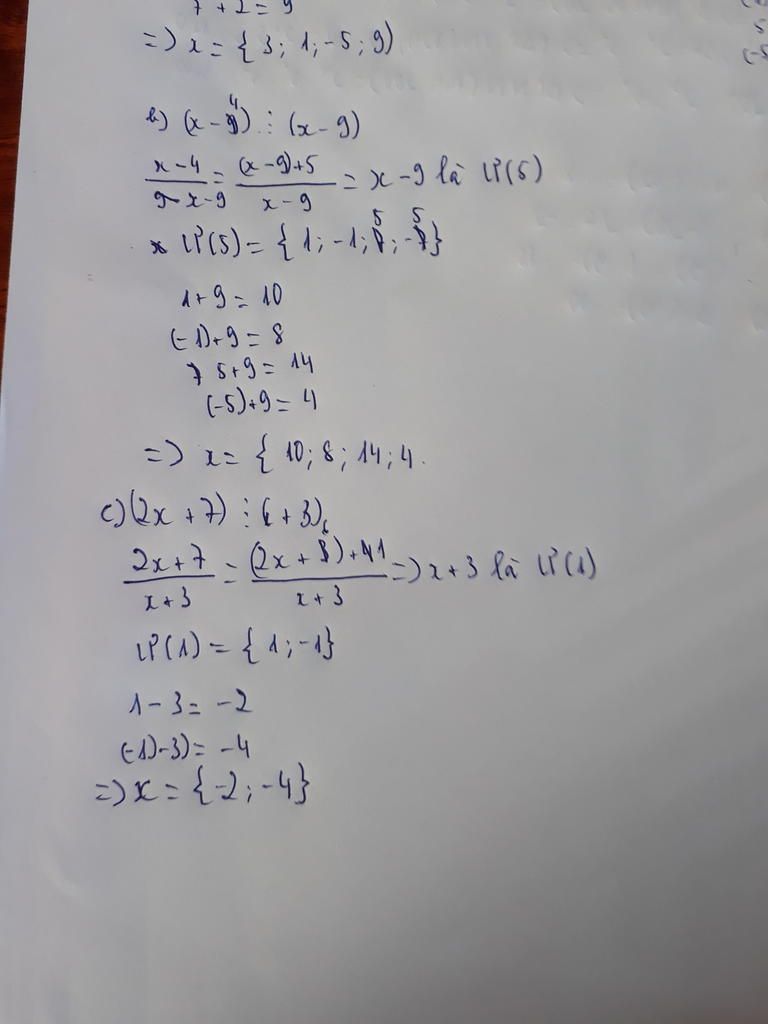 7 + 2 = 9
=> x = { 3; 1; -5; 9)
b) (x - 4) ⋮ (x - 9)
x - 4 / x - 9 = (x - 9) + 5 / x - 9 = x - 9 là Ư(5)
Ư(5) = { 1; -1; 5; -5}
1 + 9 = 10
(-1) + 9 = 8
5 + 9 = 14
(-5) + 9 = 4
=> x = { 10; 8; 14; 4.
c) (2x + 7) ⋮ (x + 3)
2x + 7 / x + 3 = (2x + 6) + 1 / x + 3 => x + 3 là Ư(1)
Ư(1) = { 1; -1}
1 - 3 = -2
(-1) - 3) = -4
=> x = {-2; -4}